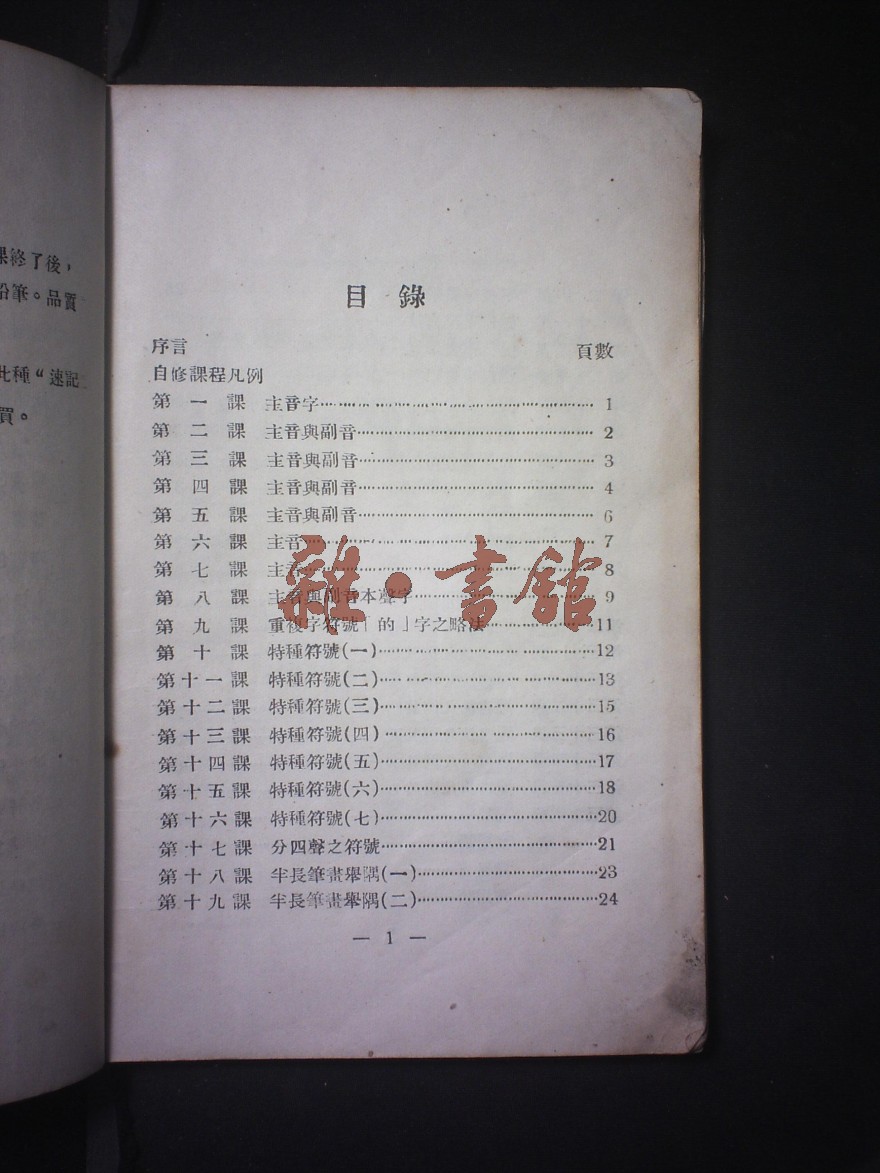 課修了後，
鉛筆。品質
此種“速記
買。
目錄
序言 頁數
自修課程凡例
第一課 主音字 1
第二課 主音與副音 2
第三課 主音與副音 3
第四課 主音與副音 4
第五課 主音與副音 6
第六課 主音 7
第七課 主音 8
第八課 主音與副音本聲字 9
第九課 重複字符號「的」字之略法 11
第十課 特種符號(一) 12
第十一課 特種符號(二) 13
第十二課 特種符號(三) 15
第十三課 特種符號(四) 16
第十四課 特種符號(五) 17
第十五課 特種符號(六) 18
第十六課 特種符號(七) 20
第十七課 分四聲之符號 21
第十八課 半長筆畫舉隅(一) 23
第十九課 半長筆畫舉隅(二) 24
— 1 —
雜·書館